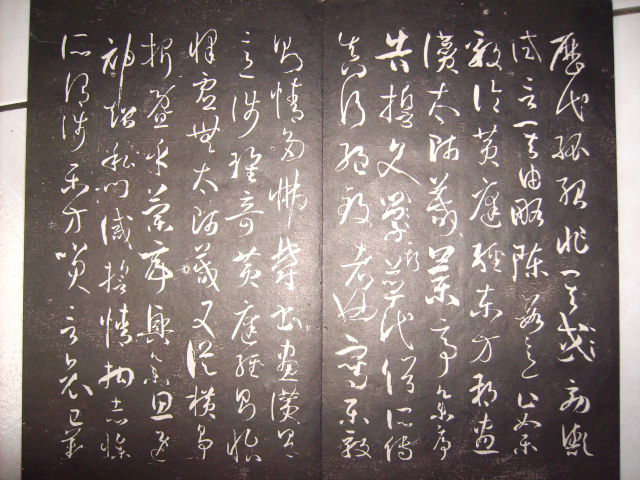 歷代孤紹非其效歟
試言其由略陳數意止如樂
毅論黃庭經東方朔畫
讚太師箴蘭亭集序
告誓文斯並代俗所傳
真行絕致者也寫樂毅
則情多怫鬱書畫讚則
意涉瑰奇黃庭經則怡
懌虛無太師箴又縱橫爭
折暨乎蘭亭興集思逸
神超私門誡誓情拘志慘
所謂涉樂方笑言哀已歎